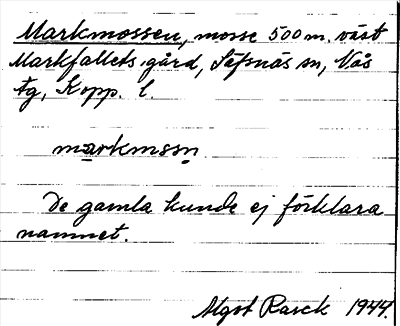 Markmossen, mosse 500 m. väst
Markfallets gård, Säfsnäs sn, Nås
tg, Kopp. l.
markmssn
De gamla kunde ej förklara
namnet.
Algot Rasck 1944.